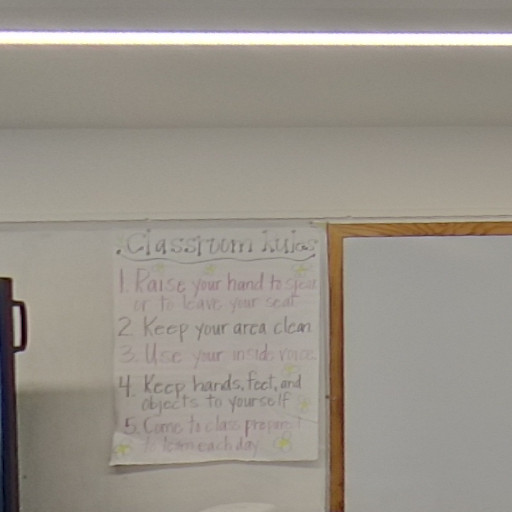 Classroom Rules
1. Raise your hand to speak
or to leave your seat
2. Keep your area clean
3. Use your inside voice
4. Keep hands, feet, and
objects to yourself
5. Come to class prepared
to learn each day